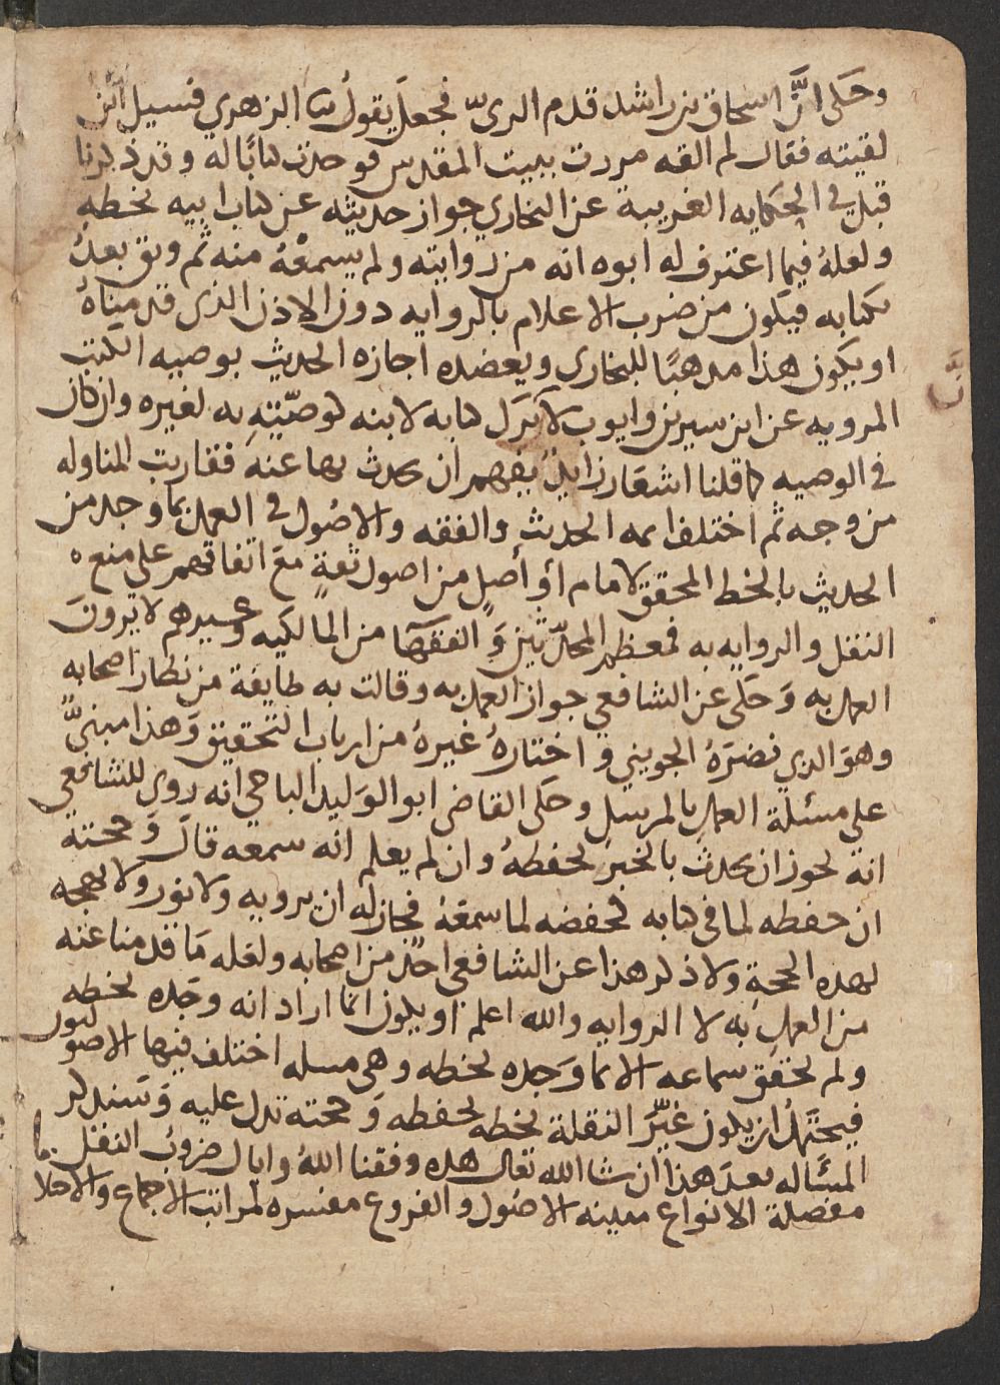 وحَكى انَّ اسحاق بن راشد قدم الريّ فجعلَ يقولُ نا الزهري فسيل اين
لقيته فقال لم القه مررت ببيت المقدس فوجدت كتابًا له وقد ذكرنا
قبل في الحكايه الغريبة عن البخاري جواز حديثه عن كتاب ابيه بخطه
ولعلهُ فيما اعترف له ابوه انه من روايته ولم يسمعْهُ منه ثم وثق بعدُ
بكتابه فيكون من ضرب الاعلام بالروايه دون الاذن الذي قدمناهُ
او يكون هذا مذهبًا للبخاري ويعضده اجازه الحديث بوصيه الكتب
المرويه عن ابن سيرين وايوب لان ترك كتابه لابنه كوصيّتهِ به لغيره وان كان
في الوصيه كما قلنا اشعَار زايدٌ يفهم ان يحدث بها عنه فقاربت المناوله
من وجه ثم اختلف ايمه الحديث والفقه والاصُول في العمل بما وجد من
الحديث بالخط المحقق لامام أو أصلٍ من اصول ثقةٍ مَع اتفاقهم على منع
النقل والروايه به فمعظم المحدّثين وَ الفقهَا من المالكيه وغيرهم لا يَرونَ
العمل به وَحَكى عن الشافعي جواز العمل به وقالت به طايفة من نظار اصحابه
وهوَ الذي نصَرَهُ الجويني واختارهُ غيرهُ من ارباب التحقيق وَهذا مبنيٌّ
على مسئلة العمل بالمرسل وحكى القاضى ابو الوَليد الباجي انه روي للشافعي
انه يجوز ان يحدث بالخبر يحفظهُ وان لم يعلم انه سمعه قال وَحجته
ان حفظه لما في كتابه كحفضه لما سمعَهُ فجاز له ان يرويه ولا نور ولا بهجه
لهذه الحجةِ ولا ذكر هذا عن الشافعي احدٌ من اصحابه ولعله مَا قدمنا عنه
من العملِ به لا الروايه والله اعلم او يكون انما اراد انه وجَده بخطه
ولم يحقق سماعه الا بما وَجده بخطه وهي مسله اختلف فيها الاصوليون
فيحتمَلُ ان يكون غيَّرَ النقلة بخطه بحفظه وَحجته تدل عليه وَسَنذكر
المسَّاله بعدَ هذا ان شا الله تعالى هذه وفقنا اللهُ واياك ضروبُ النقل بما
مفصلة الانواع مبينه الاصُول والفروع مفسره لمراتب الاجماع والاختلا